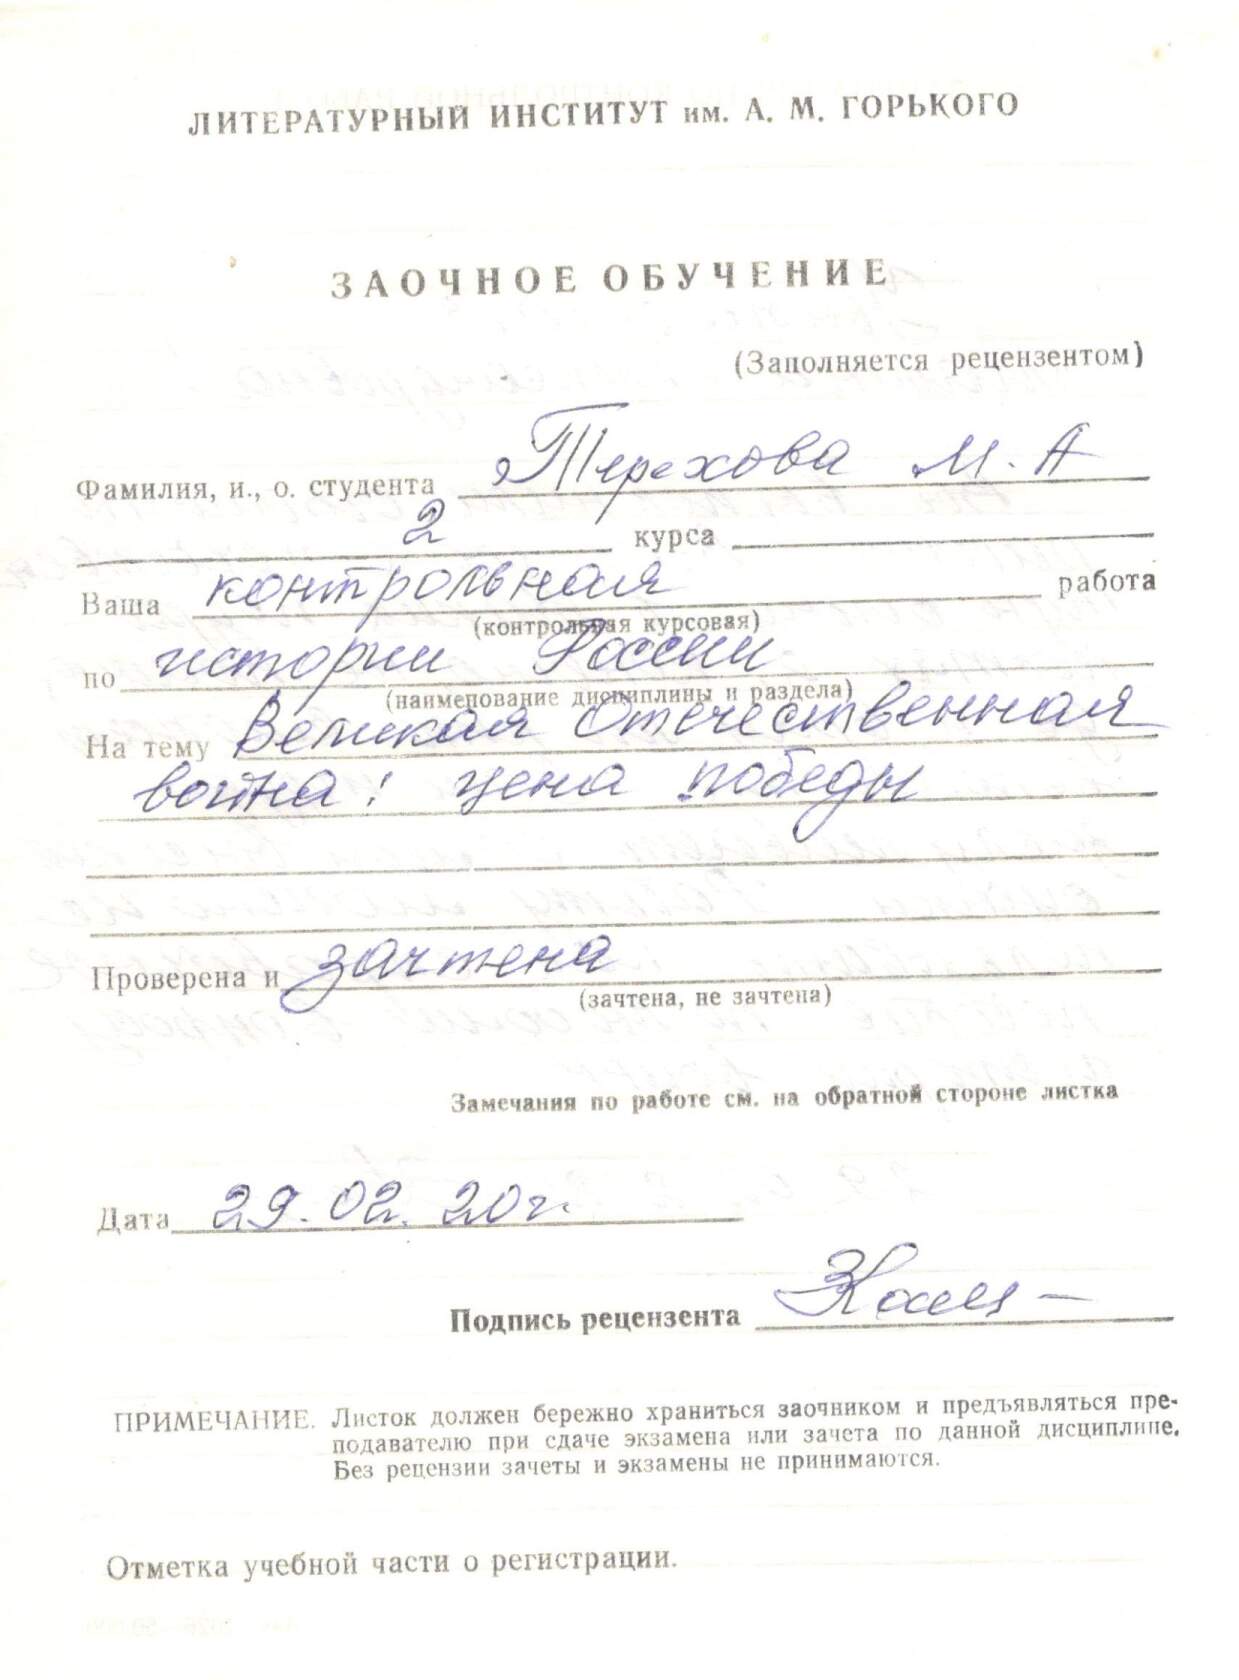 ЛИТЕРАТУРНЫЙ ИНСТИТУТ им. А. М. ГОРЬКОГО
ЗАОЧНОЕ ОБУЧЕНИЕ
(Заполняется рецензентом)
Фамилия, и., о. студента Терехова М. А
2 курса
Ваша контрольная работа
(контрольная курсовая)
по истории России
(наименование дисциплины и раздела)
На тему Великая Отечественная
война: цена победы
Проверена и зачтена
(зачтена, не зачтена)
Замечания по работе см. на обратной стороне листка
Дата 29.02.20г.
Подпись рецензента
ПРИМЕЧАНИЕ. Листок должен бережно храниться заочником и предъявляться пре-
подавателю при сдаче экзамена или зачета по данной дисциплине.
Без рецензии зачеты и экзамены не принимаются.
Отметка учебной части о регистрации.